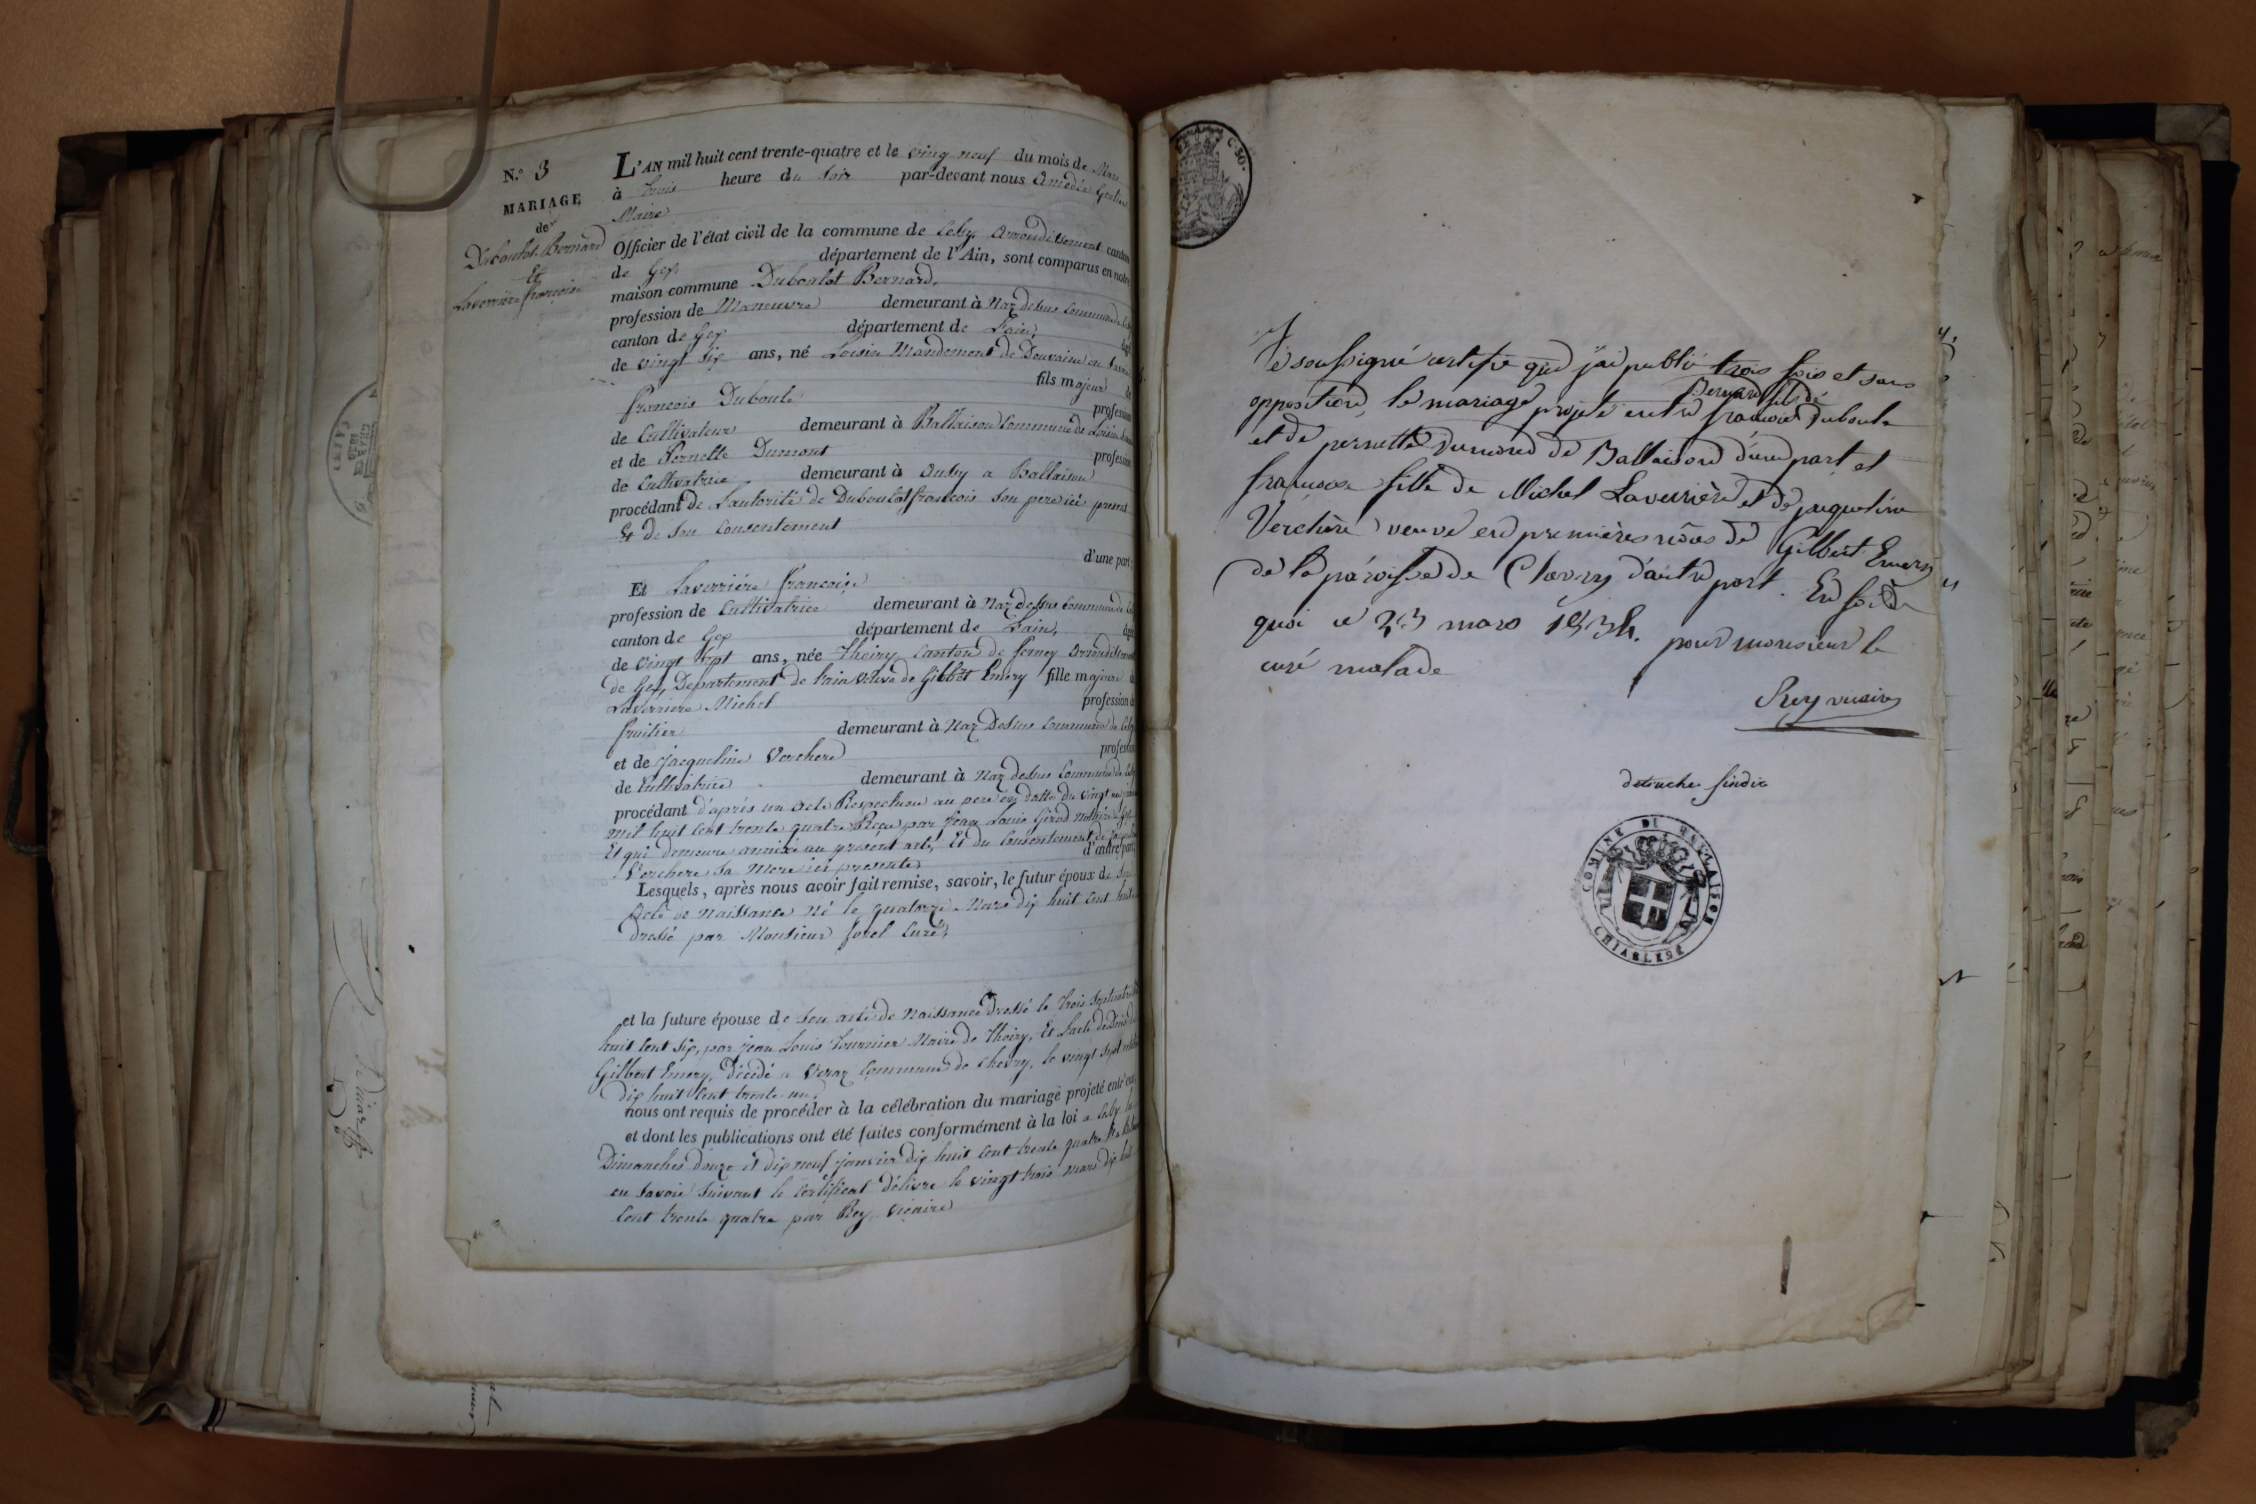 N.º 3
MARIAGE
de
Duboulot Bernard
Et
Laverrière françoise
L'AN mil huit cent trente-quatre et le ving neuf du mois de Mars
à trois heure du Soir par-devant nous Amedée
Maire
Officier de l'état civil de la commune de Cessy Arrondissement canton
de Gex département de l'Ain, sont comparus en notre
maison commune Duboulot Bernard,
profession de Manœuvre demeurant à Naz dessus Commune de
canton de Gex département de L'ain,
de vingt six ans, né Loisin Mandement de Douvaine en Savoie
fils majeur de
françois Duboule profession
de Cultivateur demeurant à Ballaison Commune de Loisin
et de Pernette Dumont profession
de Cultivatrice demeurant à a Ballaison
procédant de L'autorité de Duboulot françois Son pere ici present
Et de Son Consentement
d'une part;
Et Laverrière françoise
profession de Cultivatrice demeurant à Naz dessus Commune de
canton de Gex département de L'ain,
de vingt Sept ans, née Thoiry Canton de ferney Arrondissement
de Gex, Departement de L'ain veuve de Gilbert Emery fille majeure de
Laverriere Michel profession de
fruitier demeurant à Naz Dessus Commune de
et de Jacqueline Verchere profession
de Cultivatrice demeurant à Naz dessus Commune de
procédant d'après un acte Respectueux au pere en datte du vingt
mil huit Cent trente quatre Reçu par Jean Louis Girod Notaire à Gex
Et qui demeure annixé au present acte, Et du Consentement de
Verchere Sa Mere ici presente d'autre part;
Lesquels, après nous avoir fait remise, savoir, le futur époux de Son
Acte de Naissance Né le quatorze Mars dix huit Cent huit
dressé par Monsieur Curé,
et la future épouse de Son acte de Naissance dressé le trois Septembre
huit Cent Six, par Jean Louis Tournier Maire de Thoiry, Et L'acte de Décès de
Gilbert Emery, Décédé a Veraz Commune de Chevry, le vingt Sept
dix huit Cent trente un,
nous ont requis de procéder à la célébration du mariage projeté entr'eux
et dont les publications ont été faites conformément à la loi a Cessy les
Dimanches douze et dix neuf janvier dix huit Cent trente quatre Et a
en Savoie Suivant le Certificat délivré le vingt trois Mars dix huit
Cent trente quatre par Rey, Vicaire
C. 50.
Je soussigné certifie que j'ai publié trois fois et sans
opposition, le mariage projeté entre Bernard fils de françois Duboule
et de pernette Dumond de Ballaison d'une part, et
françoise fille de Michel Laverrière et de jacqueline
Verchère veuve en premières nôces de Gilbert Emery
de la paroisse de Chevry d'autre part. En foi de
quoi ce 23 mars 1834. pour monsieur le
curé malade
Rey vicaire
detruche sindic
COMUNE DI BALLAISON
CHIABLESE